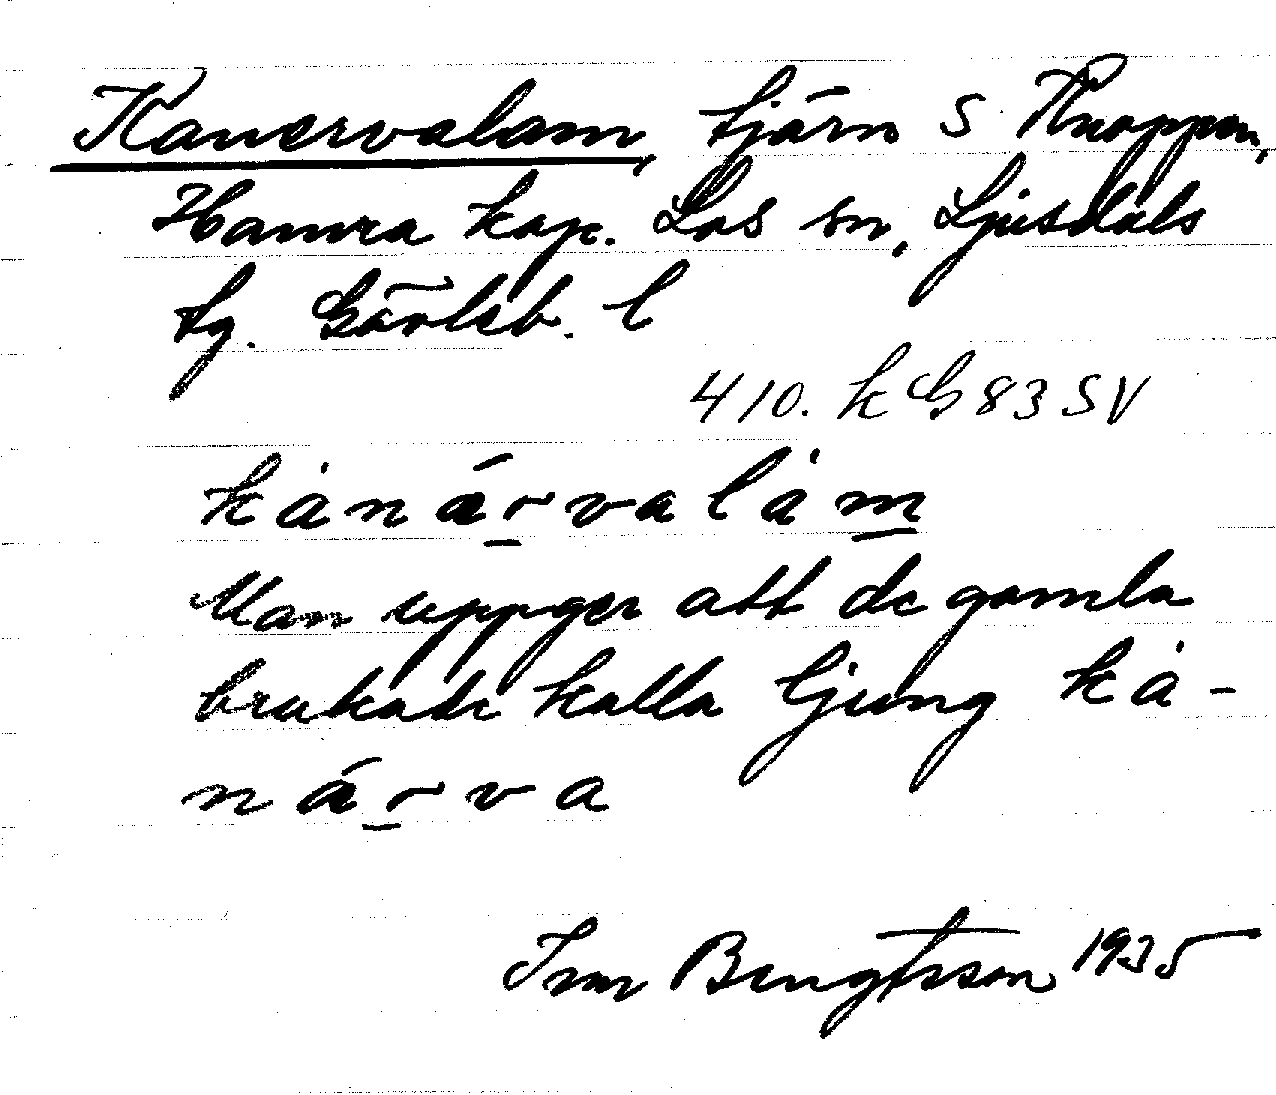 Kanervalam, tjärn S Knoppen,
Hamra kap. Los sn, Ljusdals
tg. Gävleb. l
410. k G 83 SV
kȧnä́r̲valȧm̲
Man uppger att de gamla
brukade kalla ljung kȧ-
nä́r̲va
Ivar Bengtsson 1935